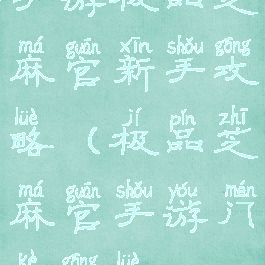 手游极品芝
má guān xīn shǒu gōng
麻官新手攻
lüè jí pǐn zhī
略（极品芝
má guān shǒu yóu mén
麻官手游门
kè gōng lüè